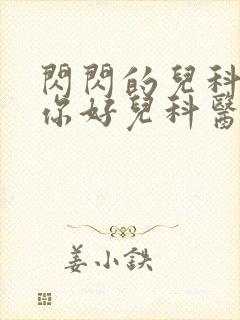 閃閃的兒科
你好兒科醫
姜小鉄